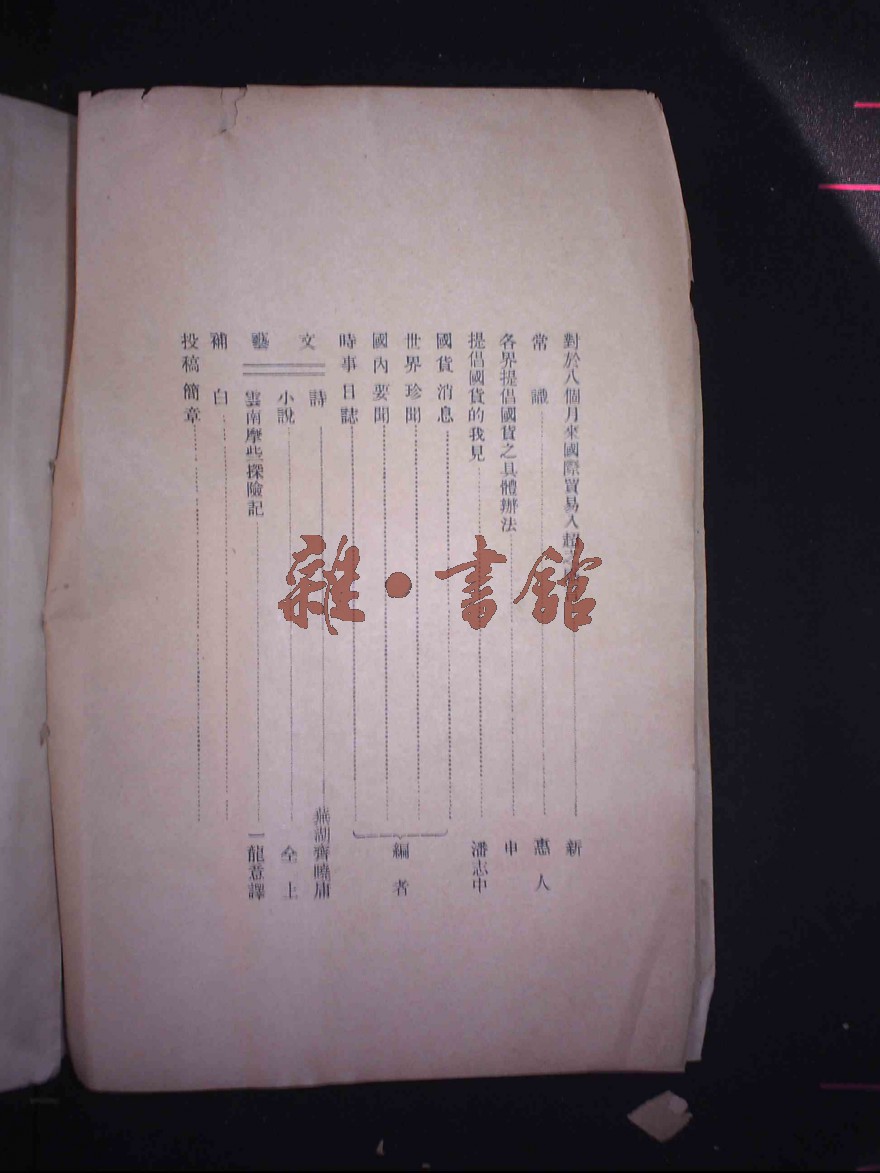 對於八個月來國際貿易入超之 新
常識 惠人
各界提倡國貨之具體辦法 申
提倡國貨的我見 潘志中
國貨消息
世界珍聞
國內要聞
時事日誌
編者
文藝
詩 蕪湖齊曉庸
小說 仝上
雲南摩些探險記 一龍意譯
補白
投稿簡章
雜·書館